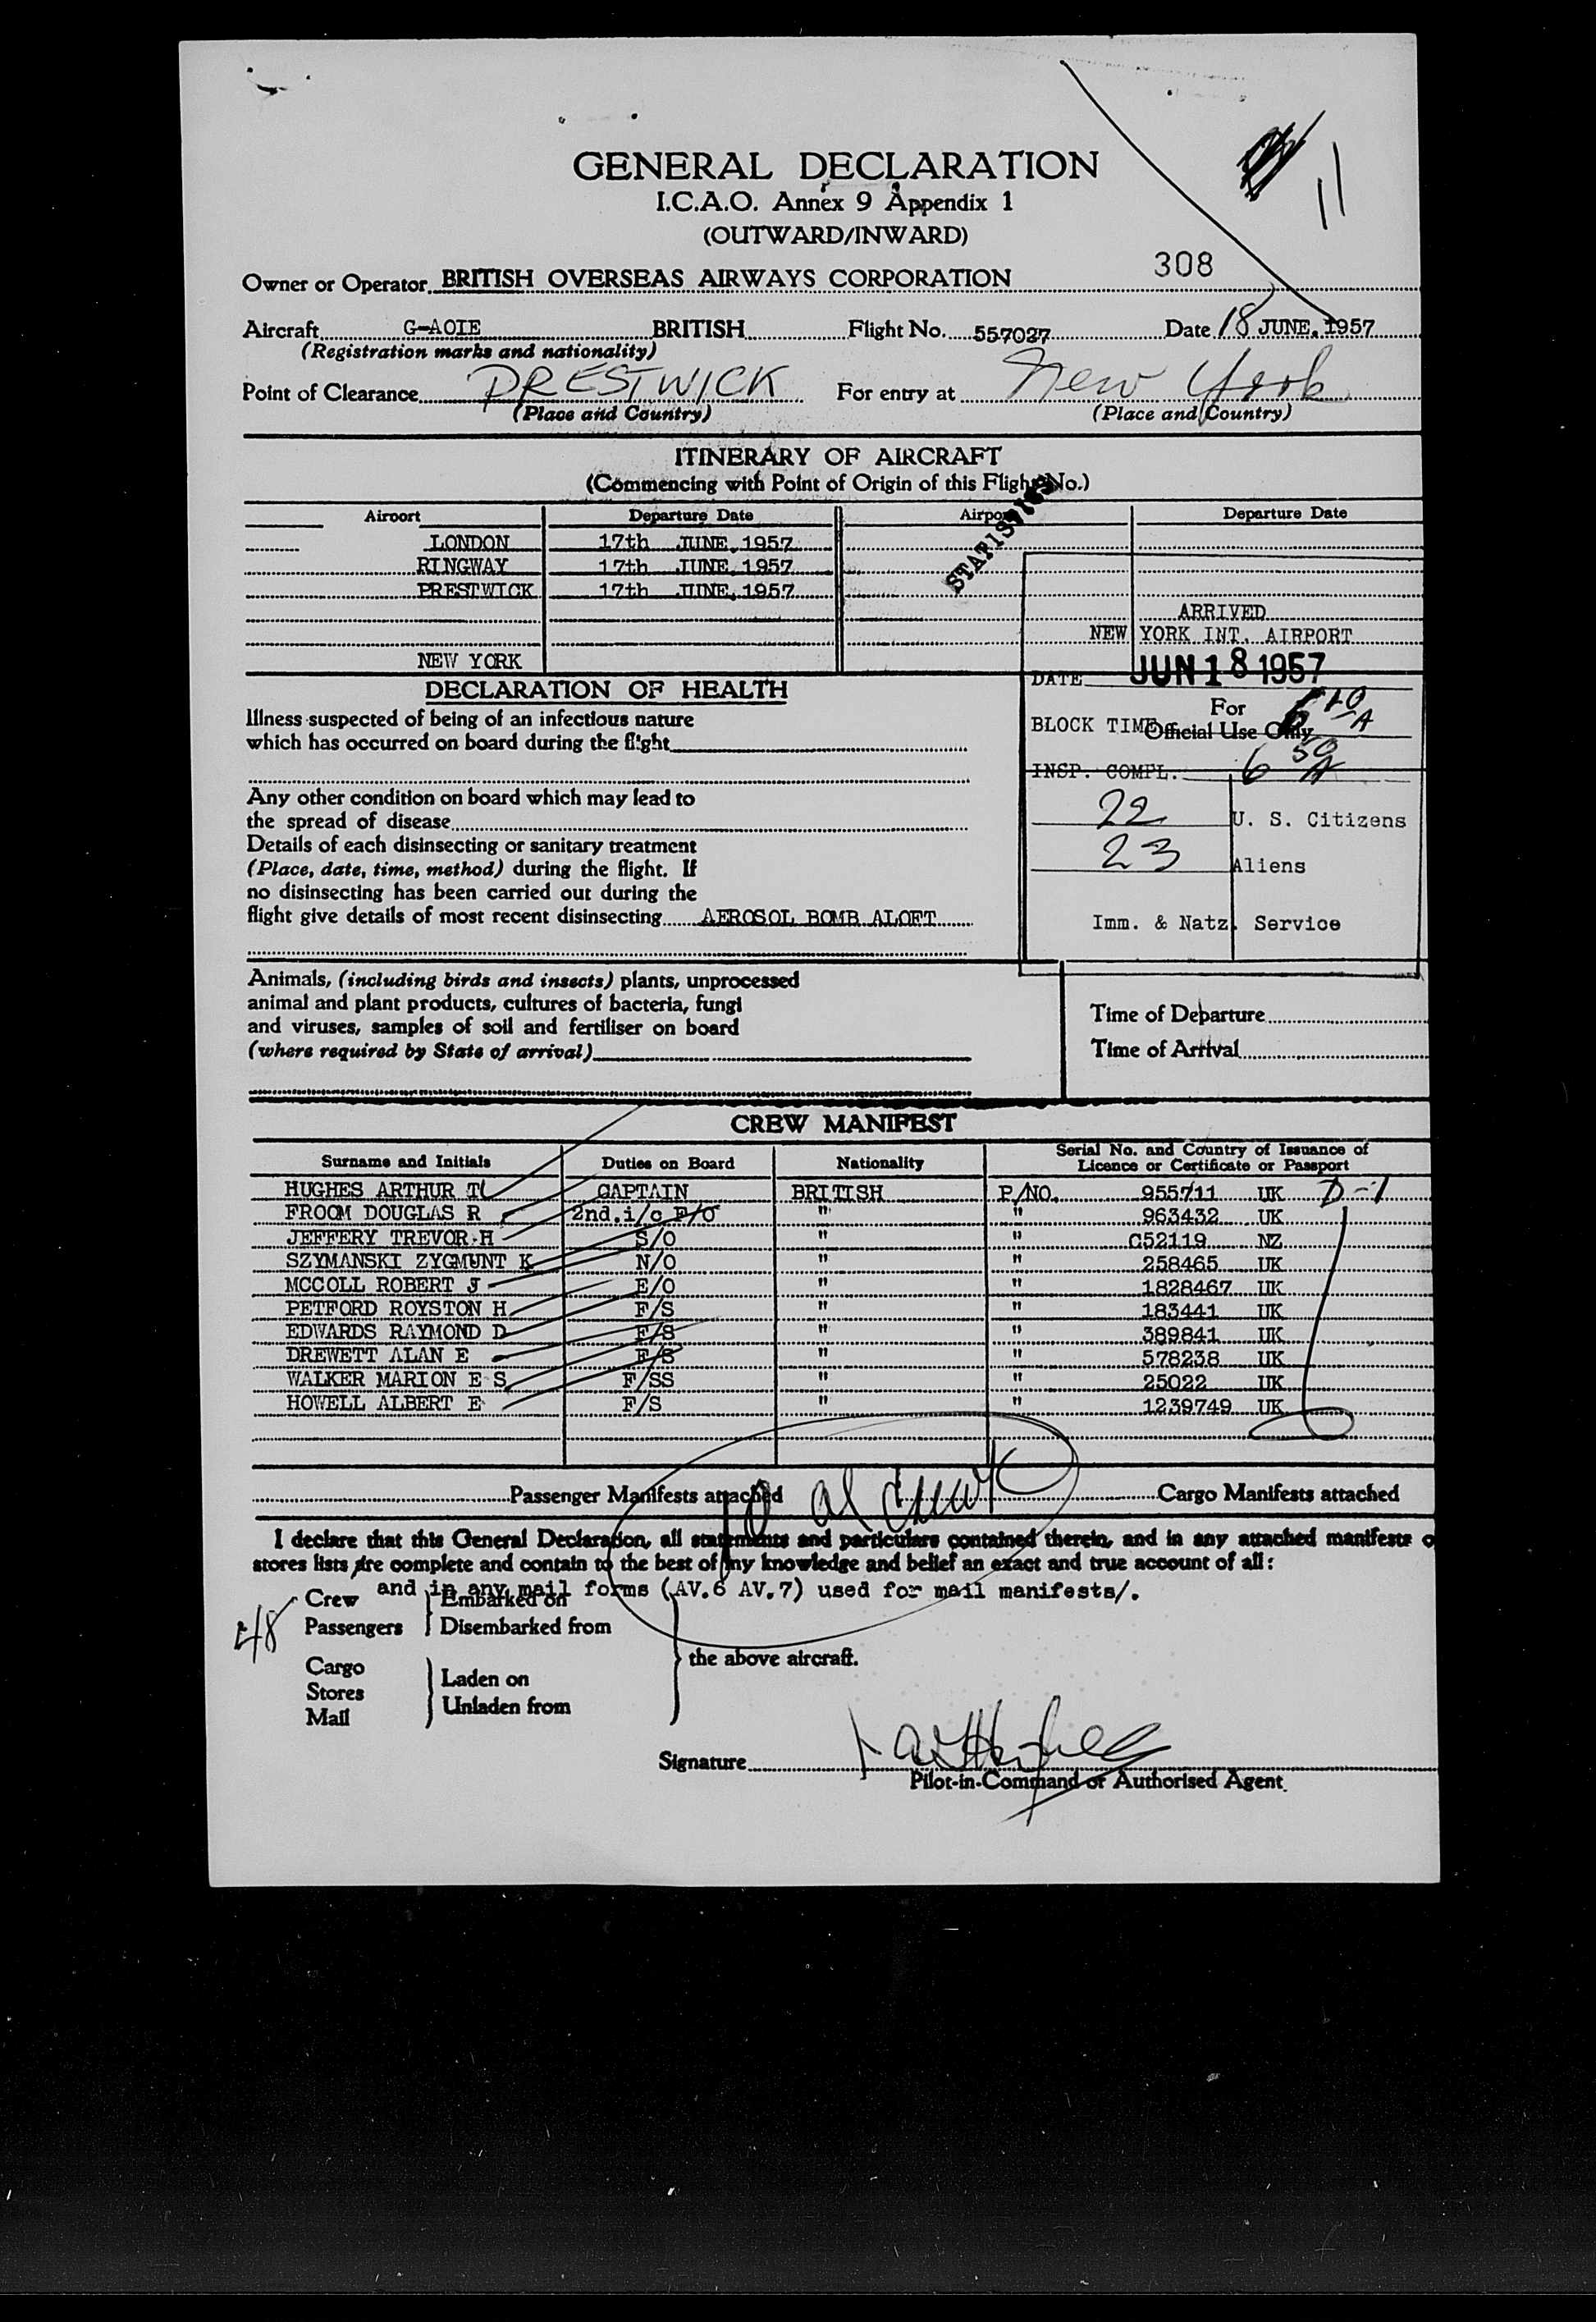 GENERAL DECLARATION
I.C.A.O. Annex 9 Appendix 1
(OUTWARD/INWARD)
11
308
Owner or Operator BRITISH OVERSEAS AIRWAYS CORPORATION
Aircraft G-AOIE BRITISH Flight No. 557027 Date 18 JUNE, 1957
(Registration marks and nationality)
Point of Clearance PRESTWICK For entry at New York
(Place and Country) (Place and Country)
ITINERARY OF AIRCRAFT
(Commencing with Point of Origin of this Flight No.)
STATISTICS
Airport Departure Date Airport Departure Date
LONDON 17th JUNE, 1957
RINGWAY 17th JUNE, 1957
PRESTWICK 17th JUNE, 1957
ARRIVED
NEW YORK INT. AIRPORT
NEW YORK
DATE JUN 18 1957
DECLARATION OF HEALTH
Illness suspected of being of an infectious nature
which has occurred on board during the flight
For
BLOCK TIME Official Use Only
INSP. COMPL. 6 50 A
Any other condition on board which may lead to
the spread of disease
22 U. S. Citizens
Details of each disinsecting or sanitary treatment
(Place, date, time, method) during the flight. If
23 Aliens
no disinsecting has been carried out during the
flight give details of most recent disinsecting AEROSOL BOMB ALOFT
Imm. & Natz. Service
Animals, (including birds and insects) plants, unprocessed
animal and plant products, cultures of bacteria, fungi
and viruses, samples of soil and fertiliser on board
(where required by State of arrival)
Time of Departure
Time of Arrival
CREW MANIFEST
Surname and Initials Duties on Board Nationality Serial No. and Country of Issuance of
Licence or Certificate or Passport
HUGHES ARTHUR T CAPTAIN BRITISH P/NO. 955711 UK D-1
FROOM DOUGLAS R 2nd.i/c F/O " " 963432 UK
JEFFERY TREVOR H S/O " " C52119 NZ
SZYMANSKI ZYGMUNT K N/O " " 258465 UK
MCCOLL ROBERT J E/O " " 1828467 UK
PETFORD ROYSTON H F/S " " 183441 UK
EDWARDS RAYMOND D F/S " " 389841 UK
DREWETT ALAN E F/S " " 578238 UK
WALKER MARION E S F/SS " " 25022 UK
HOWELL ALBERT E F/S " " 1239749 UK
Passenger Manifests attached Cargo Manifests attached
I declare that this General Declaration, all statements and particulars contained therein, and in any attached manifests o
stores lists are complete and contain to the best of my knowledge and belief an exact and true account of all:
and in any mail forms (AV.6 AV.7) used for mail manifests/.
Crew Embarked on
Passengers Disembarked from
the above aircraft.
Cargo
Stores Laden on
Mail Unladen from
Signature
Pilot-in-Command or Authorised Agent.